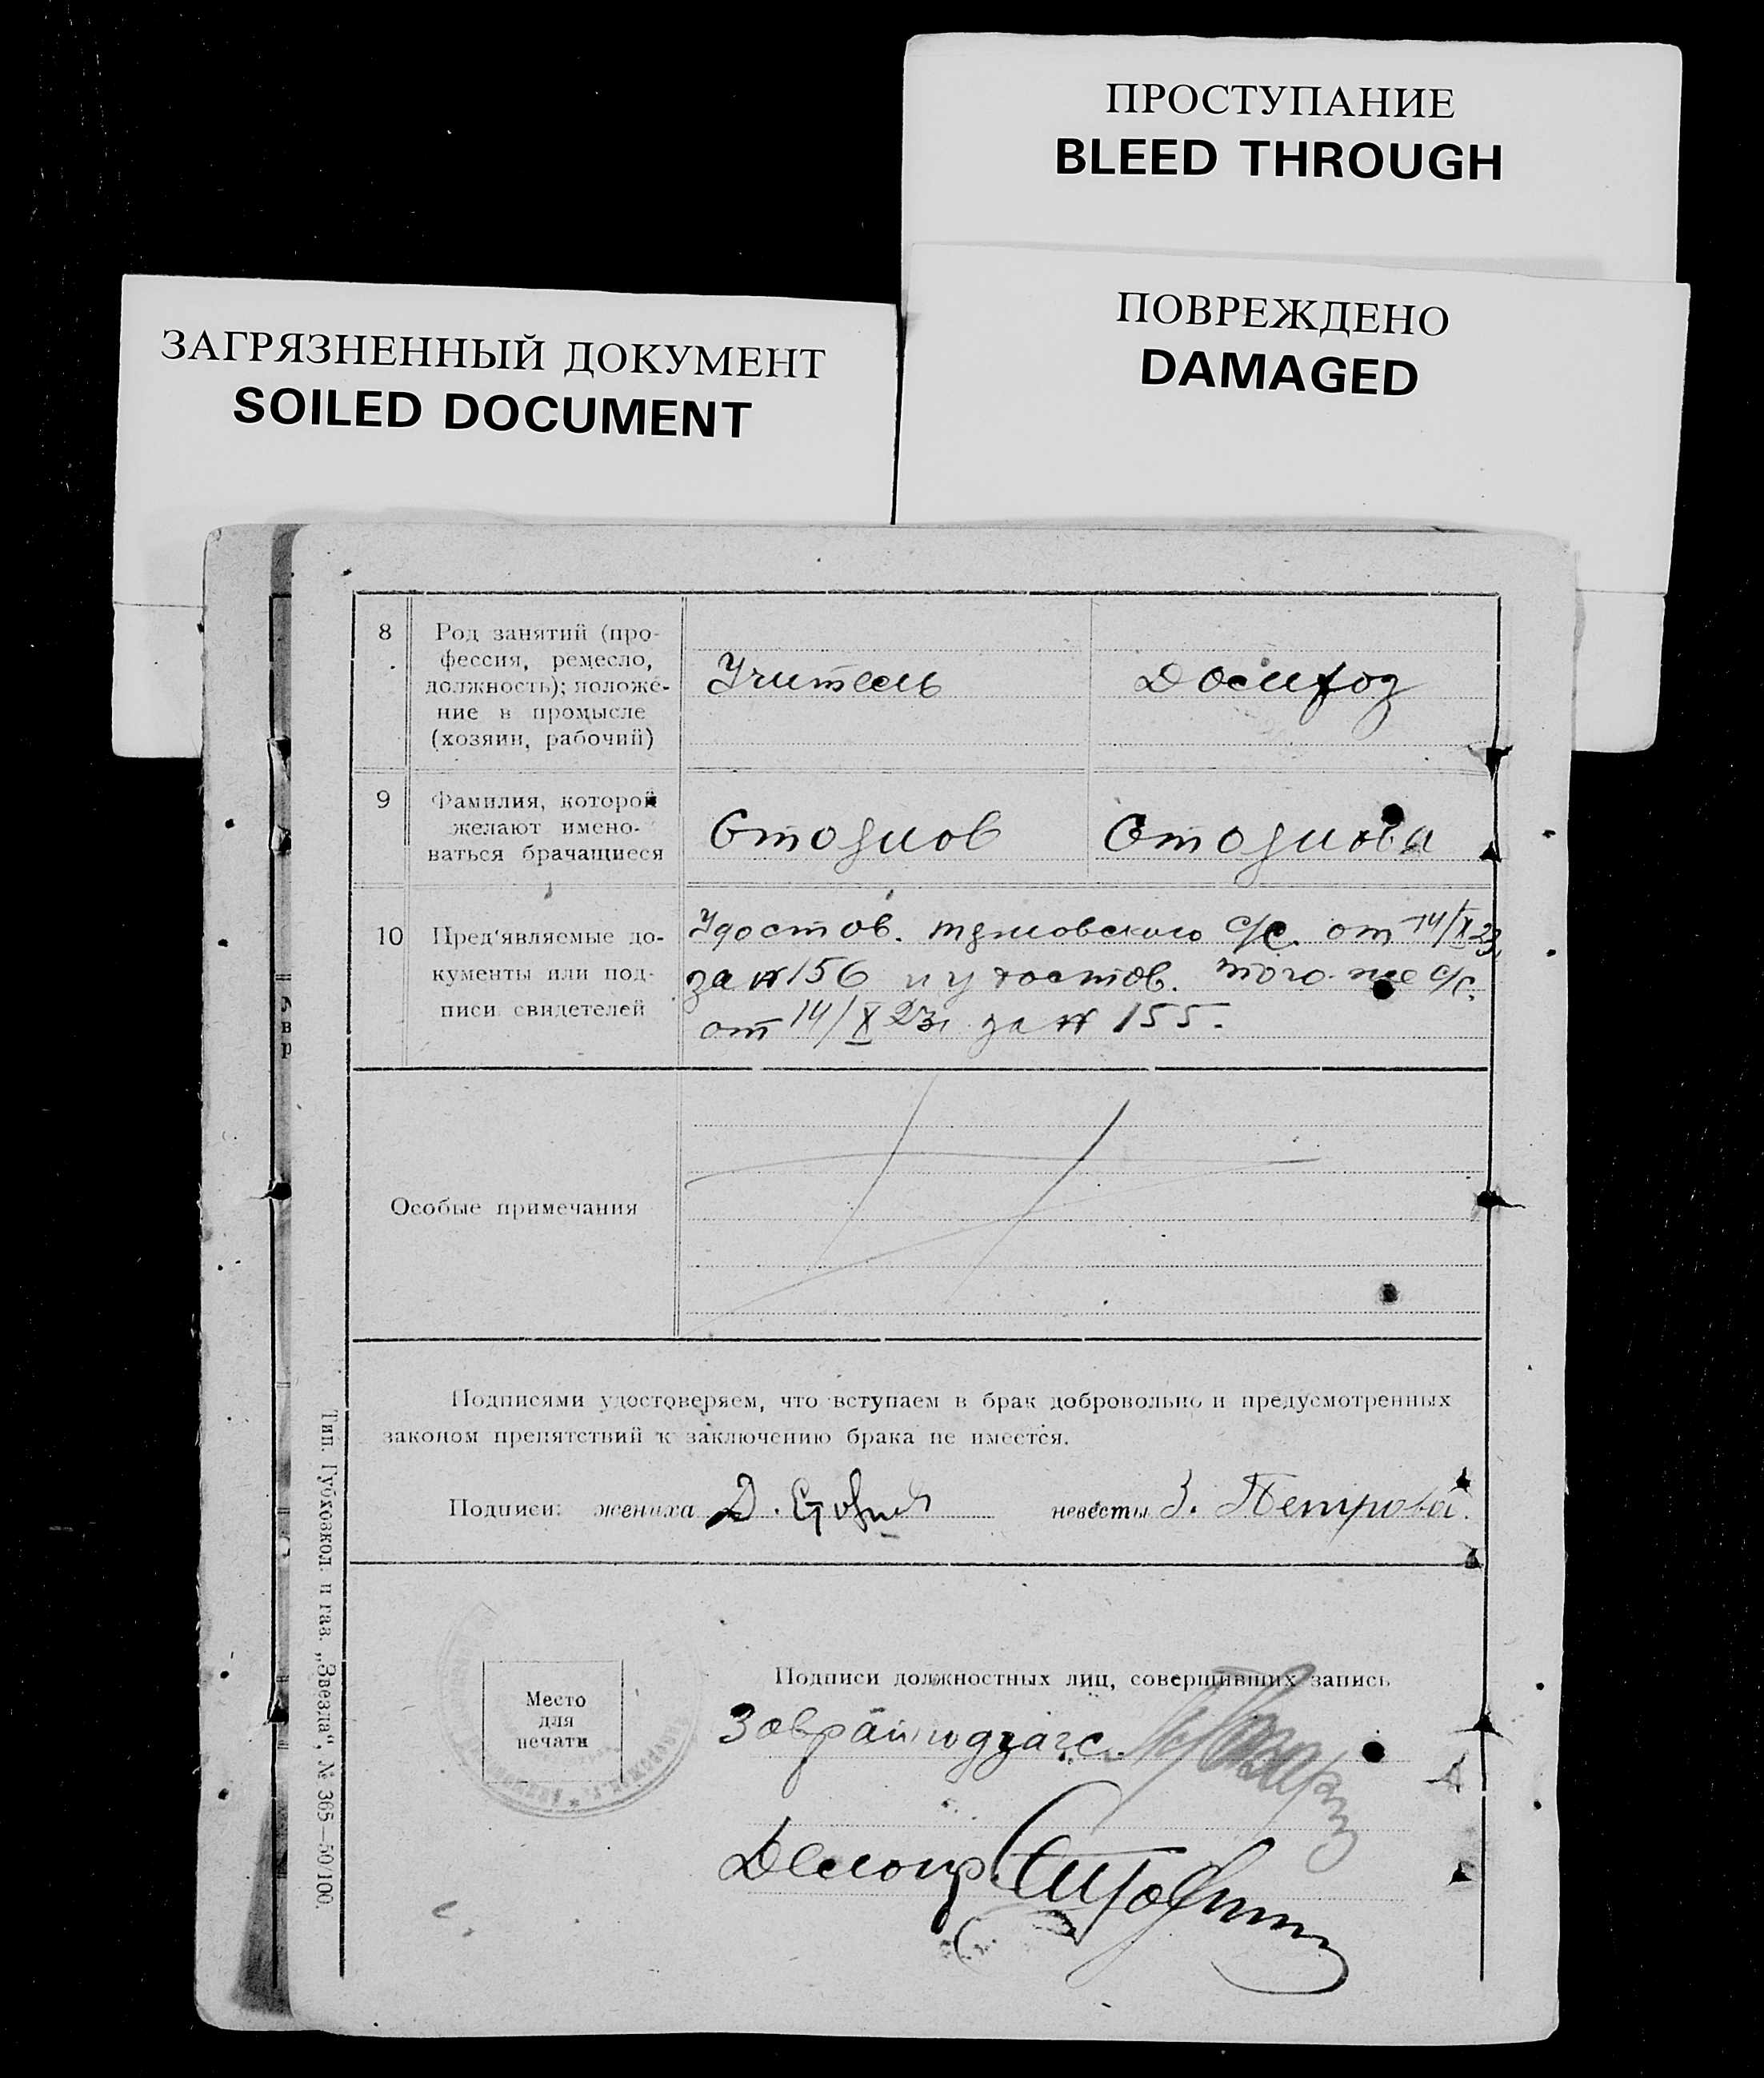 ПРОСТУПАНИЕ
BLEED THROUGH
ПОВРЕЖДЕНО
DAMAGED
ЗАГРЯЗНЕННЫЙ ДОКУМЕНТ
SOILED DOCUMENT
8
Род занятий (про-
фессия, ремесло,
должность); положе-
ние в промысле
(хозяин, рабочий)
Учитель
Домхоз
9
Фамилия, которой
желают имено-
ваться брачащиеся
10
Пред'являемые до-
кументы или под-
писи свидетелей
Удостов. с/с. от 14/X 23
за № 156 и удостов. того-же с/с.
от 14/X 23г за № 155.
Особые примечания
Подписями удостоверяем, что вступаем в брак добровольно и предусмотренных
законом препятствий к заключению брака не имеется.
Подписи: жениха Д. невесты З. Петрова.
Место
для
печати
Подписи должностных лиц, совершивших запись
Завраймподзагс
Делопр.
Тип. Губховкол. и газ. „Звезда“, № 365—50/100.